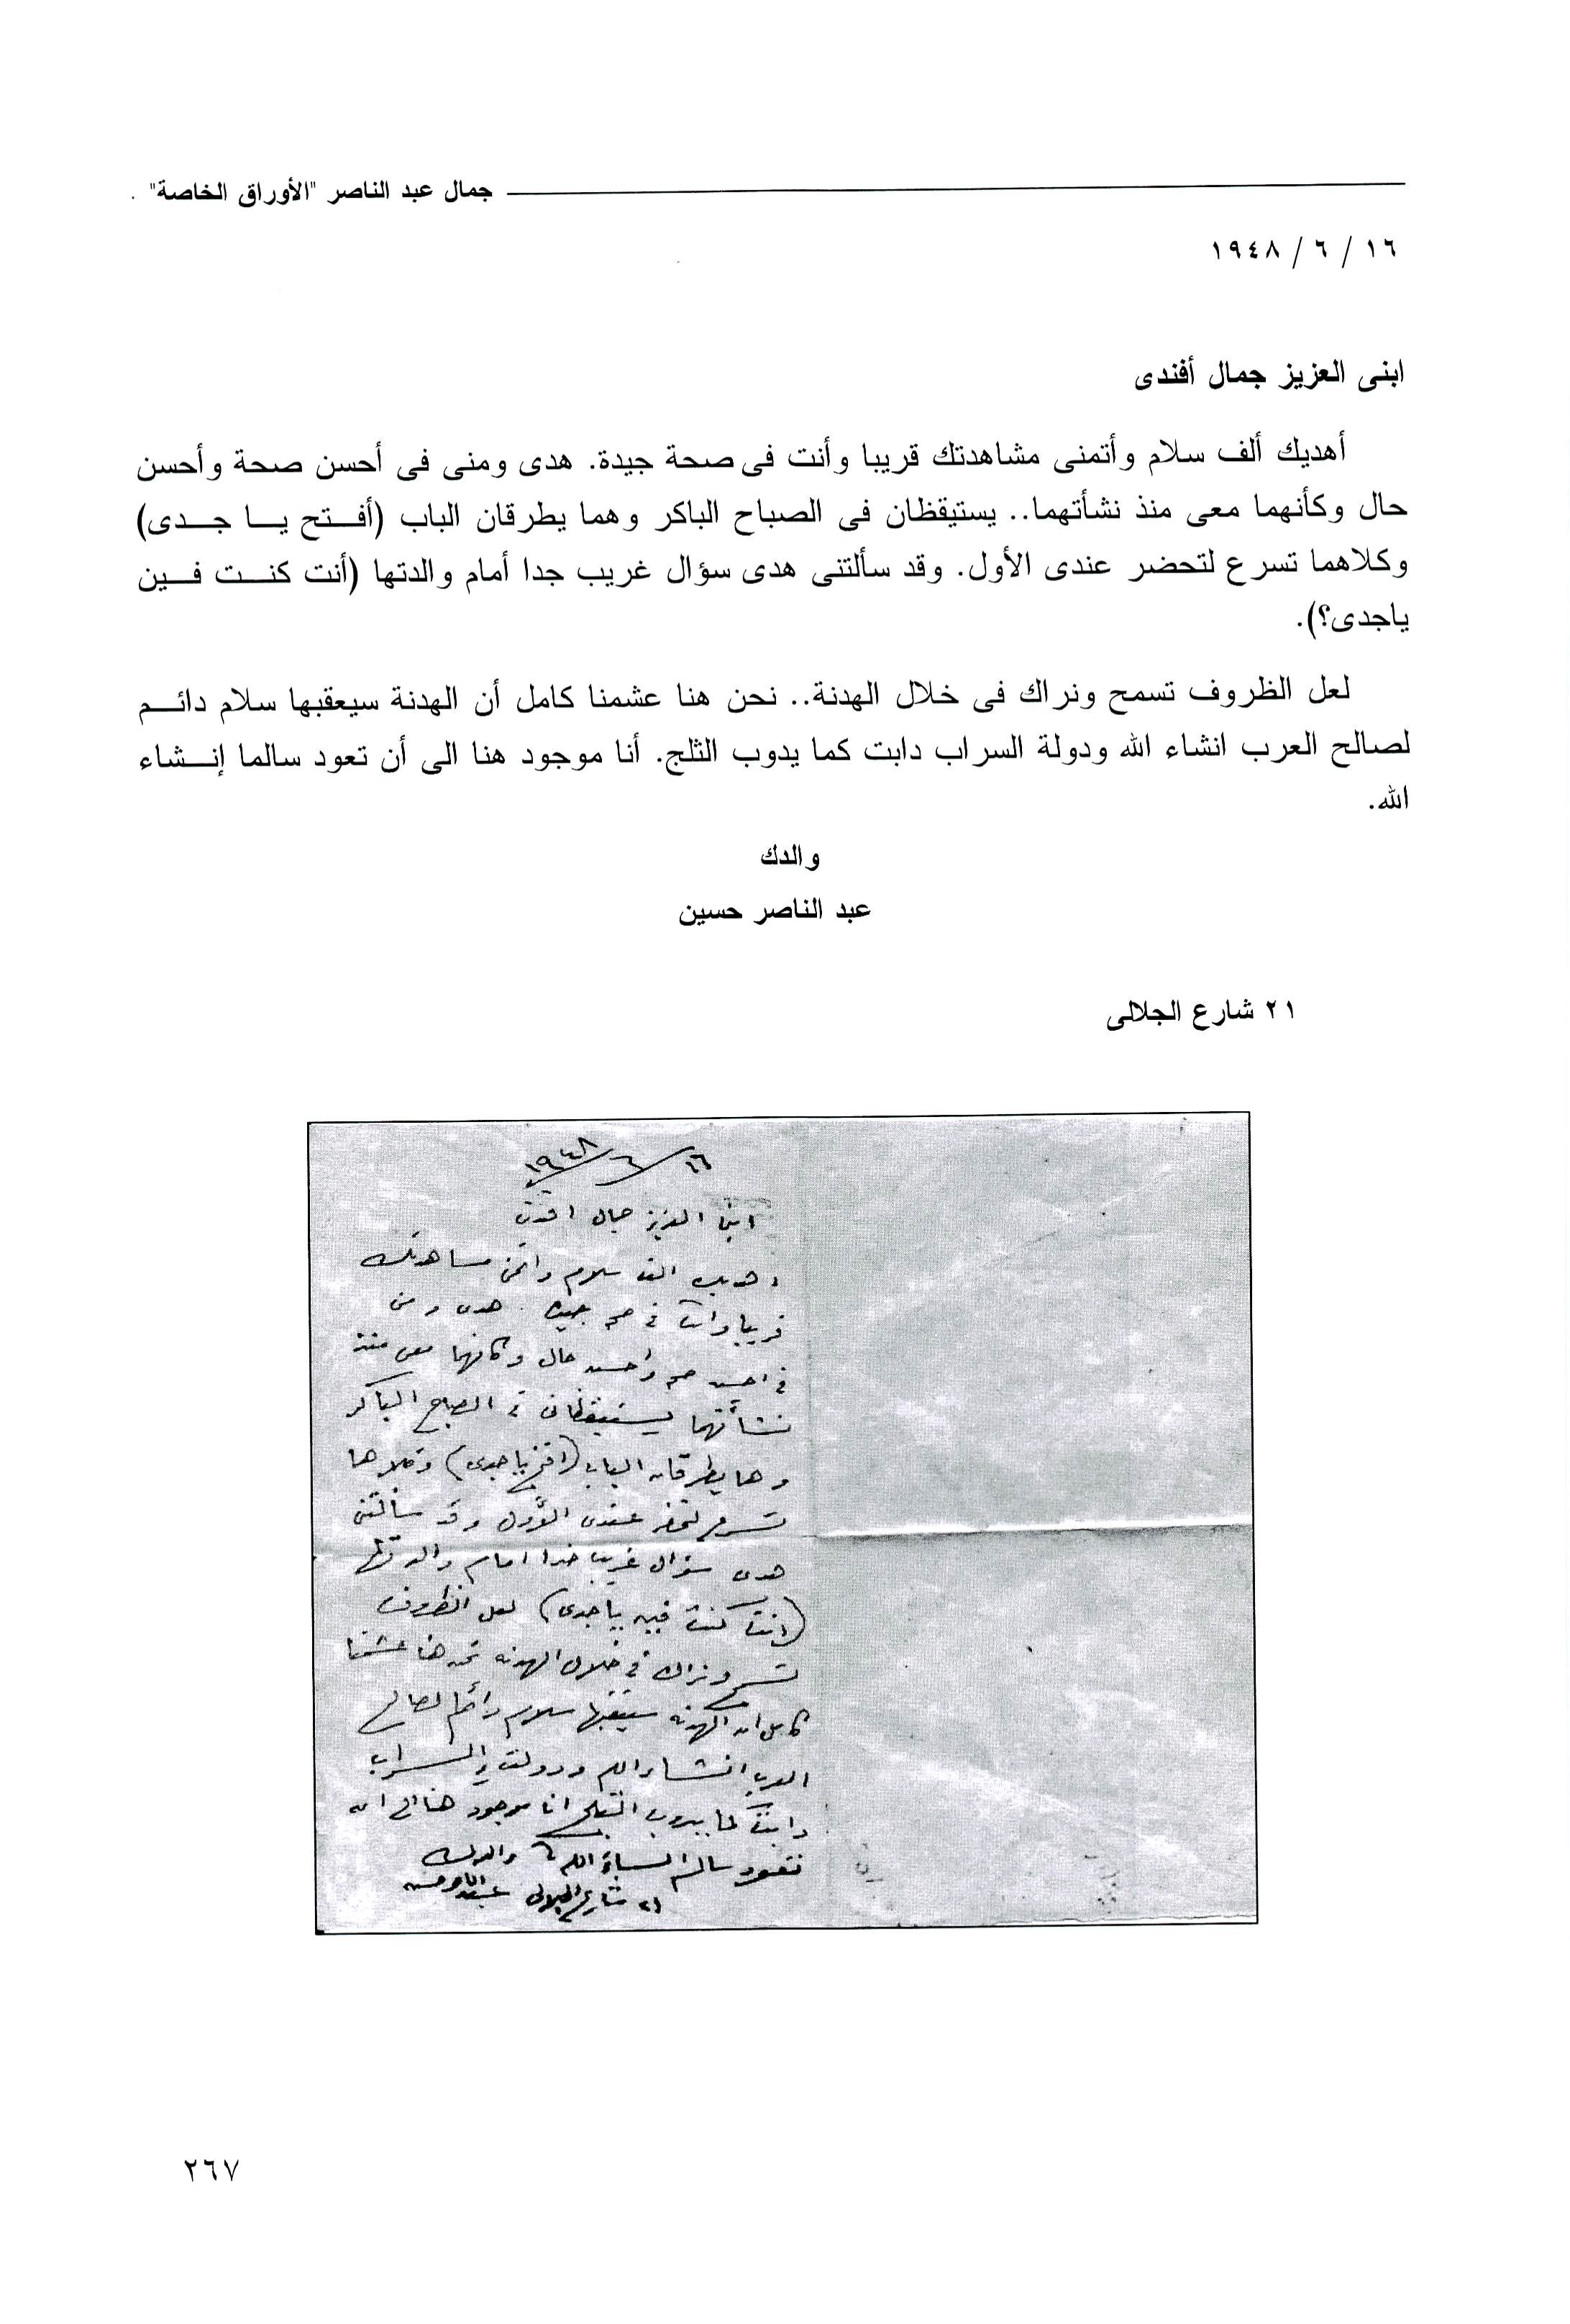 جمال عبد الناصر "الأوراق الخاصة"
١٦ / ٦ / ١٩٤٨
ابنى العزيز جمال أفندى
أهديك ألف سلام وأتمنى مشاهدتك قريبا وأنت فى صحة جيدة. هدى ومنى فى أحسن صحة وأحسن
حال وكأنهما معى منذ نشأتهما.. يستيقظان فى الصباح الباكر وهما يطرقان الباب (أفتح يا جدى)
وكلاهما تسرع لتحضر عندى الأول. وقد سألتنى هدى سؤال غريب جدا أمام والدتها (أنت كنت فين
ياجدى؟).
لعل الظروف تسمح ونراك فى خلال الهدنة.. نحن هنا عشمنا كامل أن الهدنة سيعقبها سلام دائم
لصالح العرب انشاء الله ودولة السراب دابت كما يدوب الثلج. أنا موجود هنا الى أن تعود سالما إنشاء
الله.
والدك
عبد الناصر حسين
٢١ شارع الجلالى
١٦/٦/١٩٤٨
ابنى العزيز جمال افندى
اهديك الف سلام واتمنى مشاهدتك
قريبا وانت فى صحه جيده . هدى ومنى
فى احسن صحه واحسن حال وكانهما معى منذ
نشأتهما يستيقظان فى الصباح الباكر
وهما يطرقان الباب (افتح ياجدى) وكلاهما
تسرع لتحضر عندى الأول وقد سألتنى
هدى سؤال غريب جدا امام والدتها
(انت كنت فين ياجدى) لعل الظروف
تسمح ونراك فى خلال الهدنه نحن هنا عشمنا
كامل ان الهدنه سيعقبها سلام دائم لصالح
العرب انشاء الله ودولة السراب
دابت كما يدوب الثلج انا موجود هنا الى ان
تعود سالم انشاء الله والدك
٢١ شارع الجلالى عبد الناصر حسين
٢٦٧